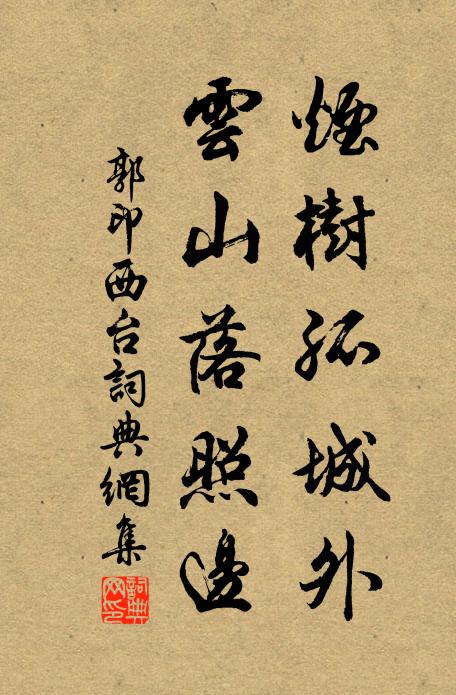 煙樹孤城外
雲山落照邊
郭印西台詞典網集
詞典网印